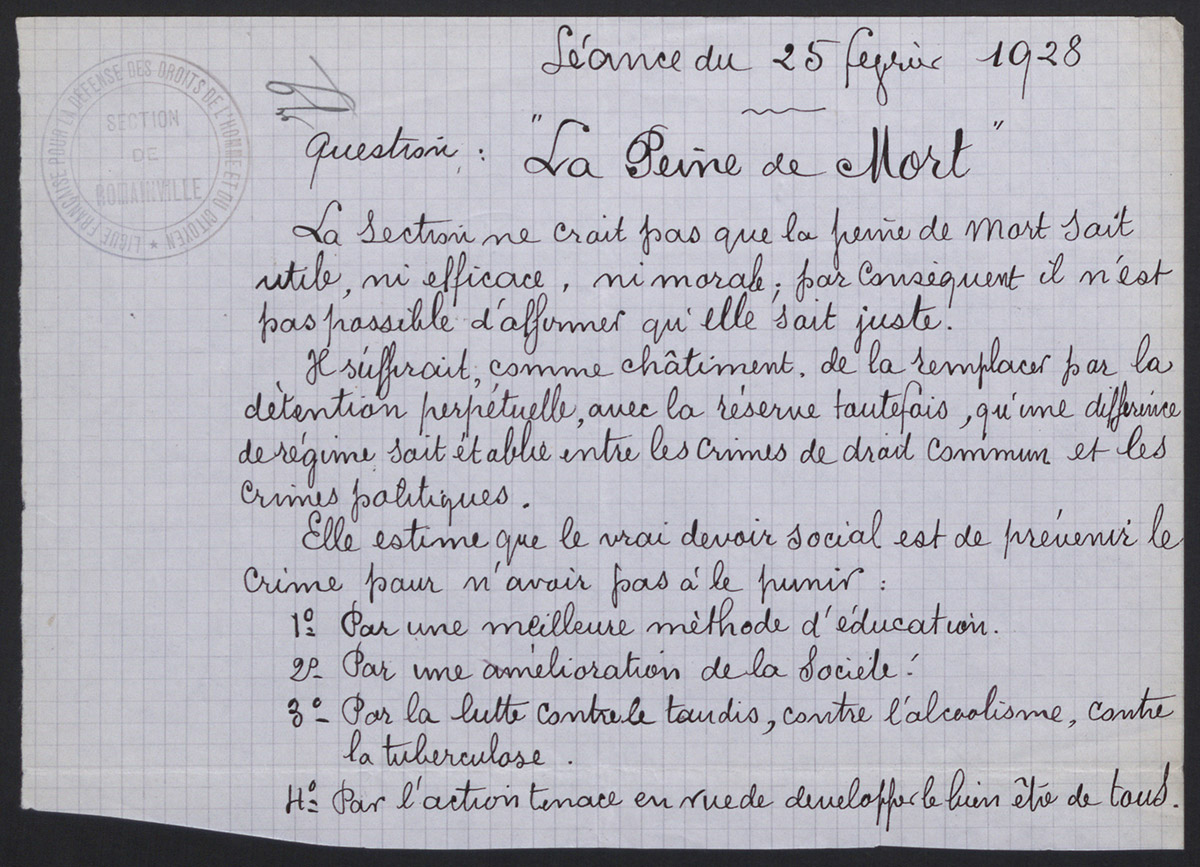 Séance du 25 février 1928
LIGUE FRANÇAISE POUR LA DÉFENSE DES DROITS DE L'HOMME ET DU CITOYEN
SECTION
DE
ROMAINVILLE
Question : "La Peine de Mort"
La Section ne croit pas que la peine de Mort soit
utile, ni efficace, ni morale; par Conséquent il n'est
pas possible d'affirmer qu'elle soit juste.
Il suffirait, comme châtiment, de la remplacer par la
détention perpétuelle, avec la réserve toutefois, qu'une différence
de régime soit établie entre les Crimes de droit Commun et les
Crimes politiques.
Elle estime que le vrai devoir social est de prévenir le
Crime pour n'avoir pas à le punir :
1º Par une meilleure méthode d'éducation.
2º Par une amélioration de la Société.
3º Par la lutte contre le taudis, contre l'alcoolisme, contre
la tuberculose.
4º Par l'action tenace en vue de developper le bien être de tous.